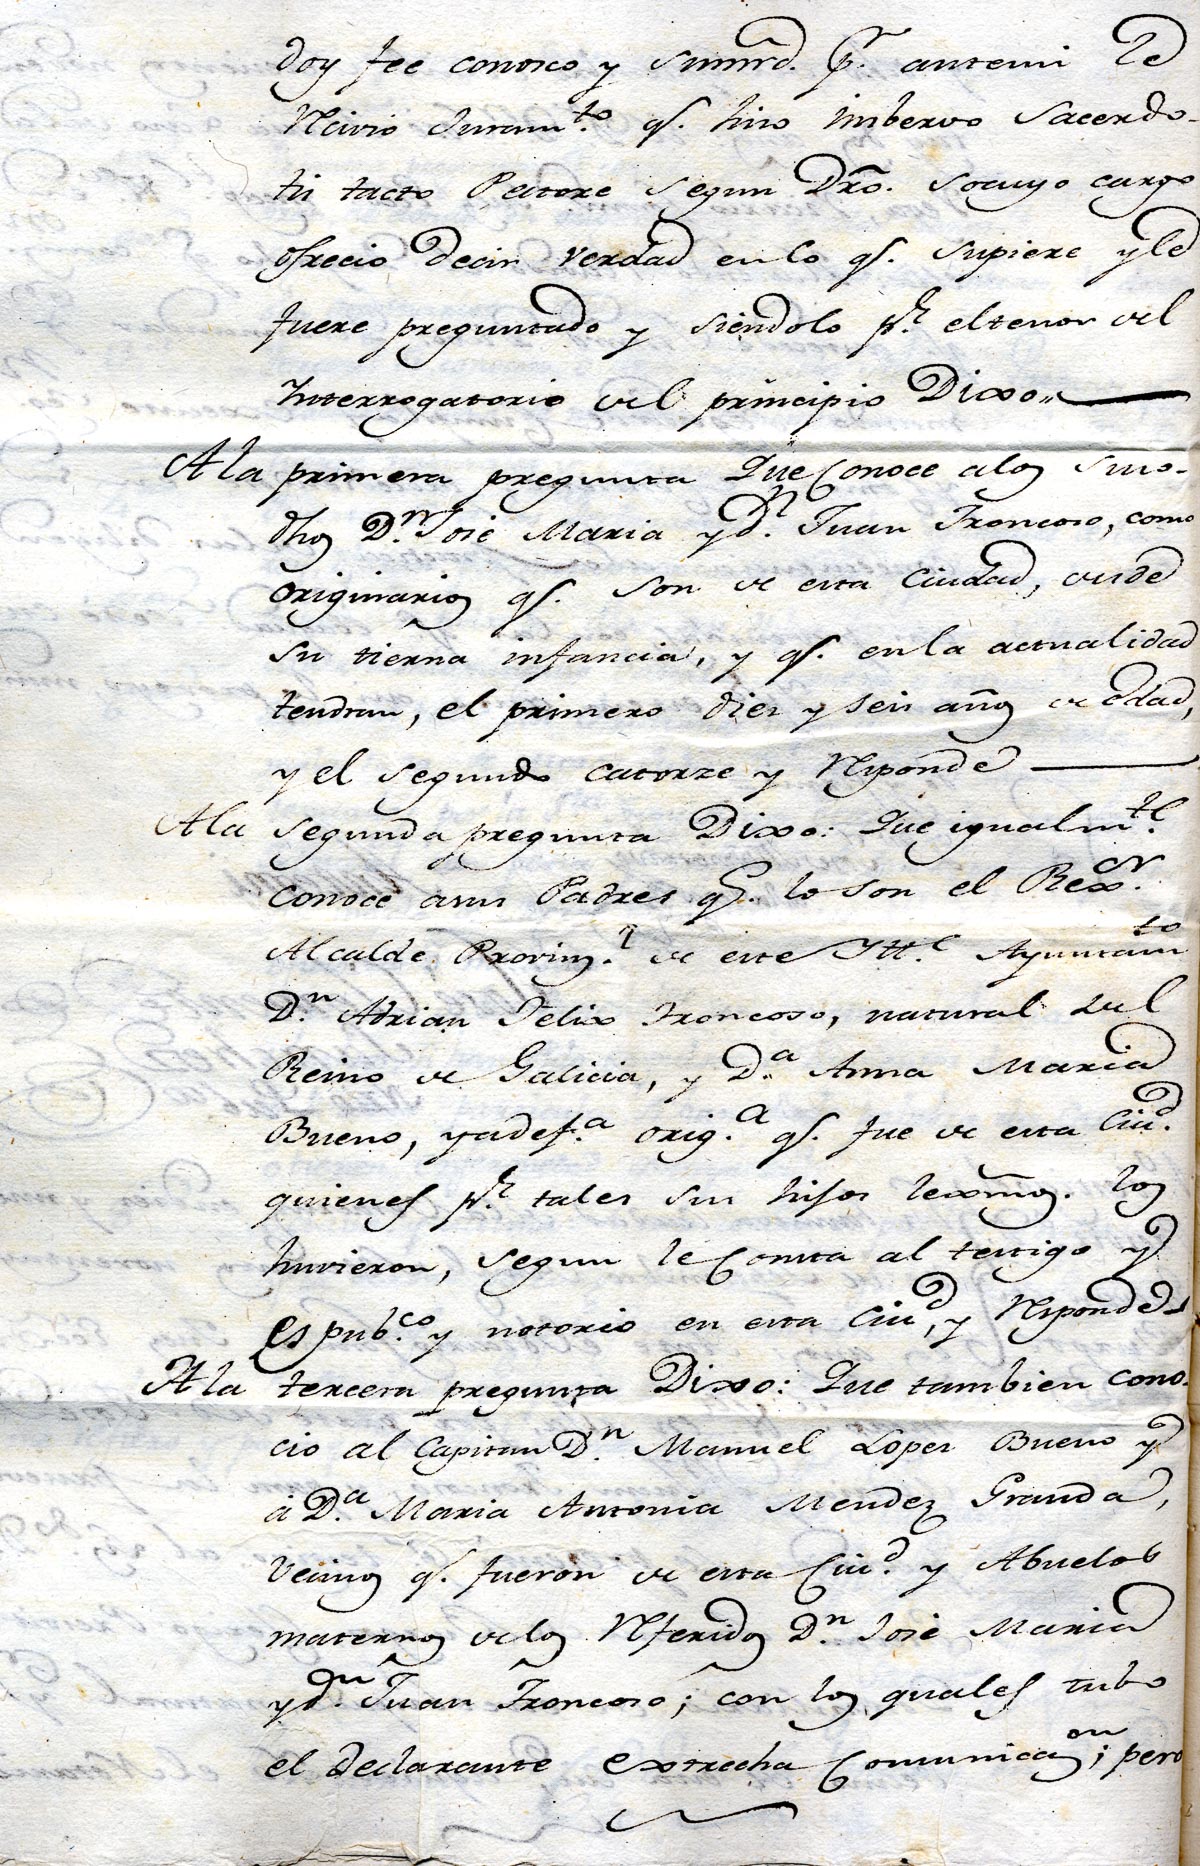 doy fee conosco y Sumrd. pr. antemi le
Recivio Juramto. qe. hiso inbervo Sacerdo-
tii tacto Pectore segun Dro. socuyo cargo
ofrecio decir verdad en lo qe. supiere y le
fuere preguntado y siendolo pr. el tenor del
Interrogatorio del principio Dixo„
A la primera pregunta Que Conoce a los suso-
dhos Dn. José Maria y dn. Juan Troncoso, como
originarios qe. son de esta Ciudad, desde
su tierna infancia, y qe. en la actualidad
tendran, el primero dies y seis años de edad,
y el segundo catorze y Responde
A la segunda pregunta Dixo: Que igualmte.
conoce a sus Padres qe. lo son el Rexor.
Alcalde Provinl. de este Ille. Ayuntamto
Dn. Adrian Felix Troncoso, natural del
Reino de Galicia, y Da. Anna Maria
Bueno, ya defa. origa. qe. fue de esta Ciud.
quienes pr. tales sus hijos lexmos. los
huvieron, segun le Consta al testigo y
es pubco. y notorio en esta Ciud, y Responde
A la tercera pregunta Dixo: Que tambien cono-
cio al Capitan Dn. Manuel Lopes Bueno y
à Da. Maria Antonia Mendez Granda,
Vecinos qe. fueron de esta Ciud. y Abuelos
maternos de los Referidos Dn. José Maria
y dn. Juan Troncoso; con los quales tubo
el declarante extrecha Comunicaon; pero